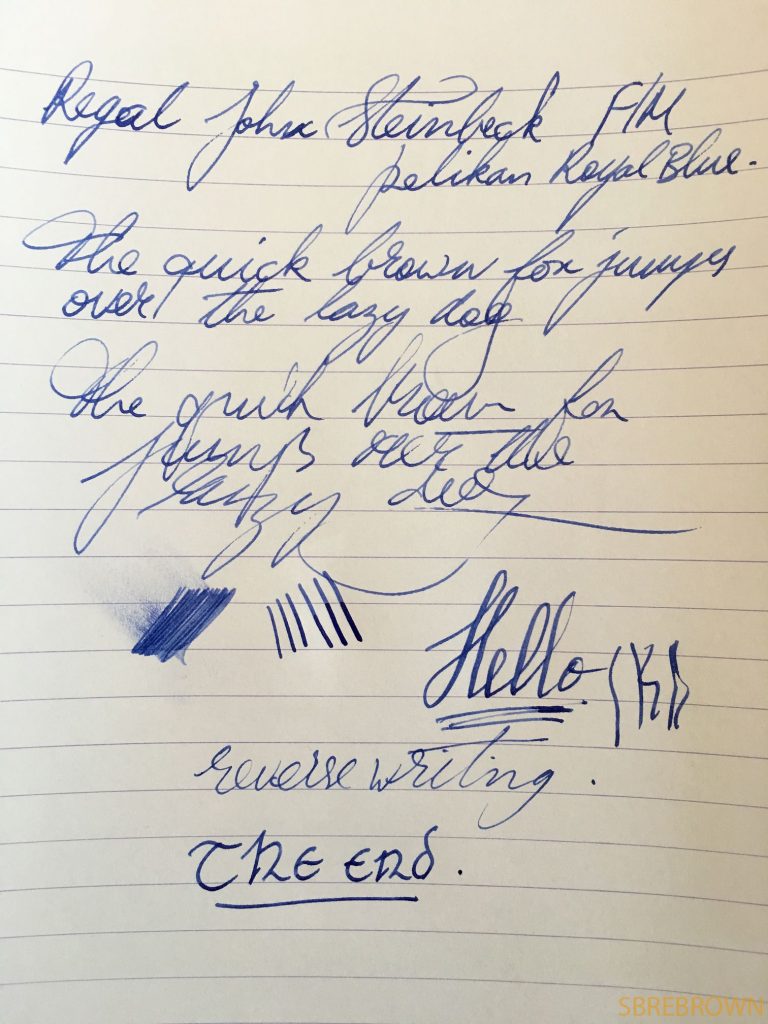 Regal John Steinbeck F/M
pelikan Royal Blue.
The quick brown fox jumps
over the lazy dog
The quick brown fox
jumps over the
lazy dog
Hello
reverse writing.
The end.
SBREBROWN